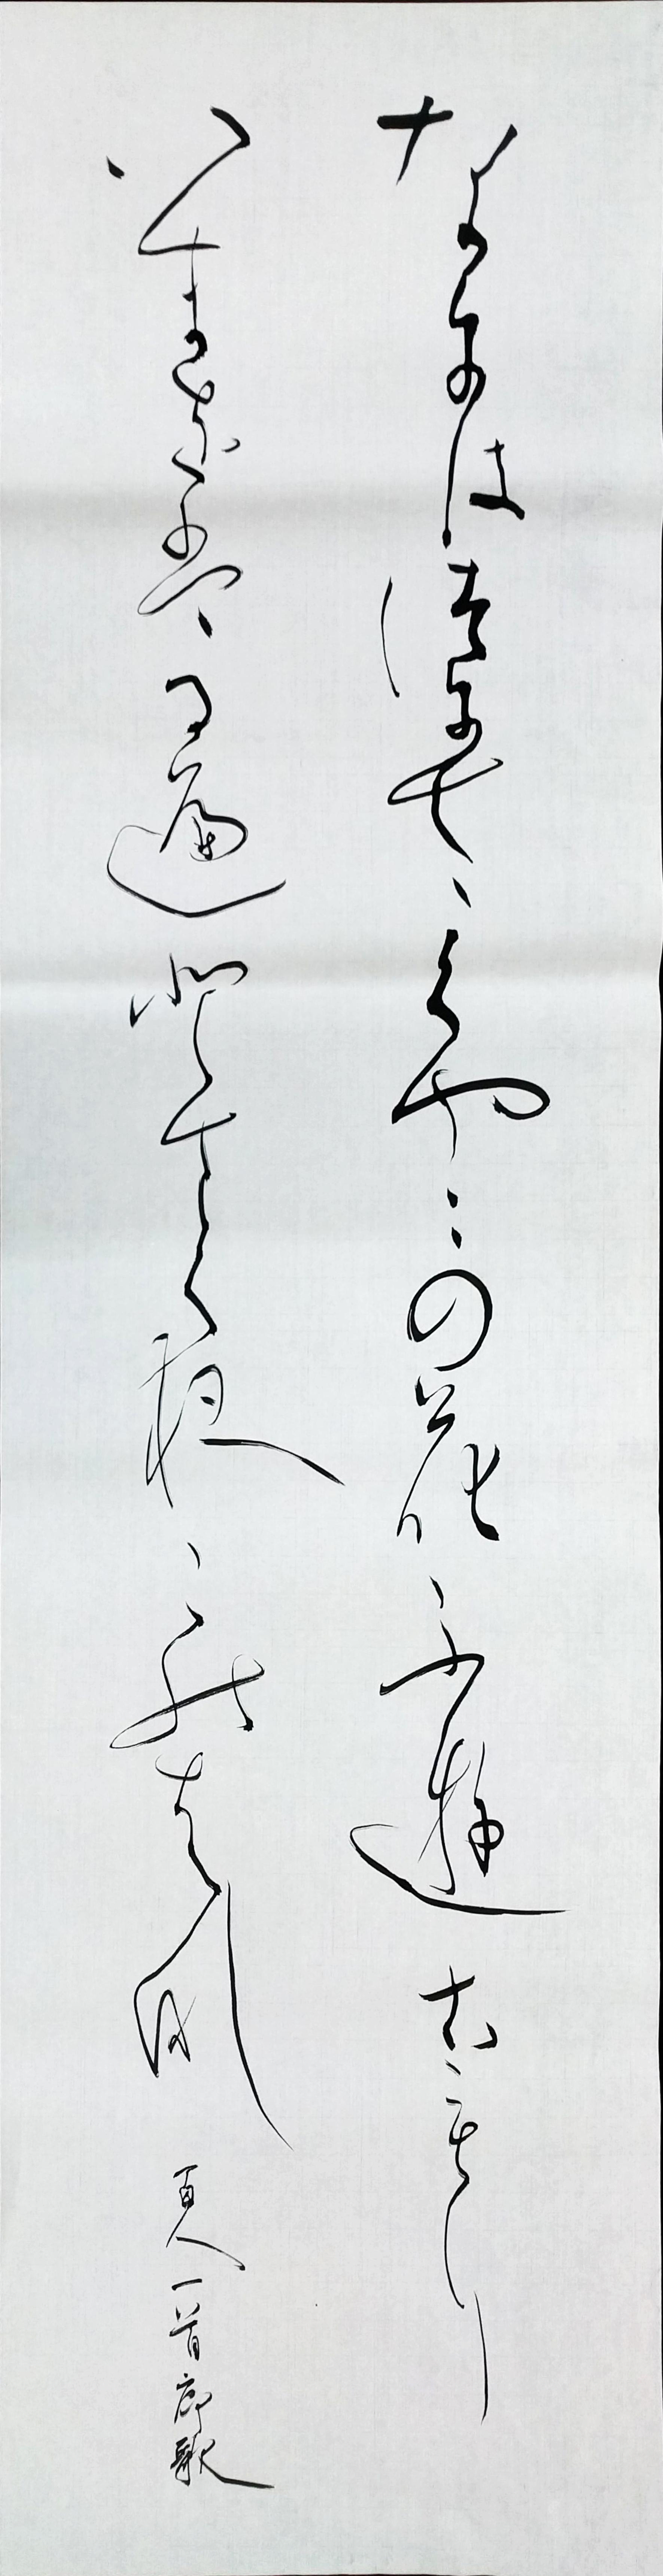 なにはつにさくやこの花ふ遊こもり
いまをはる遍とさくやこのはな
百人一首序歌